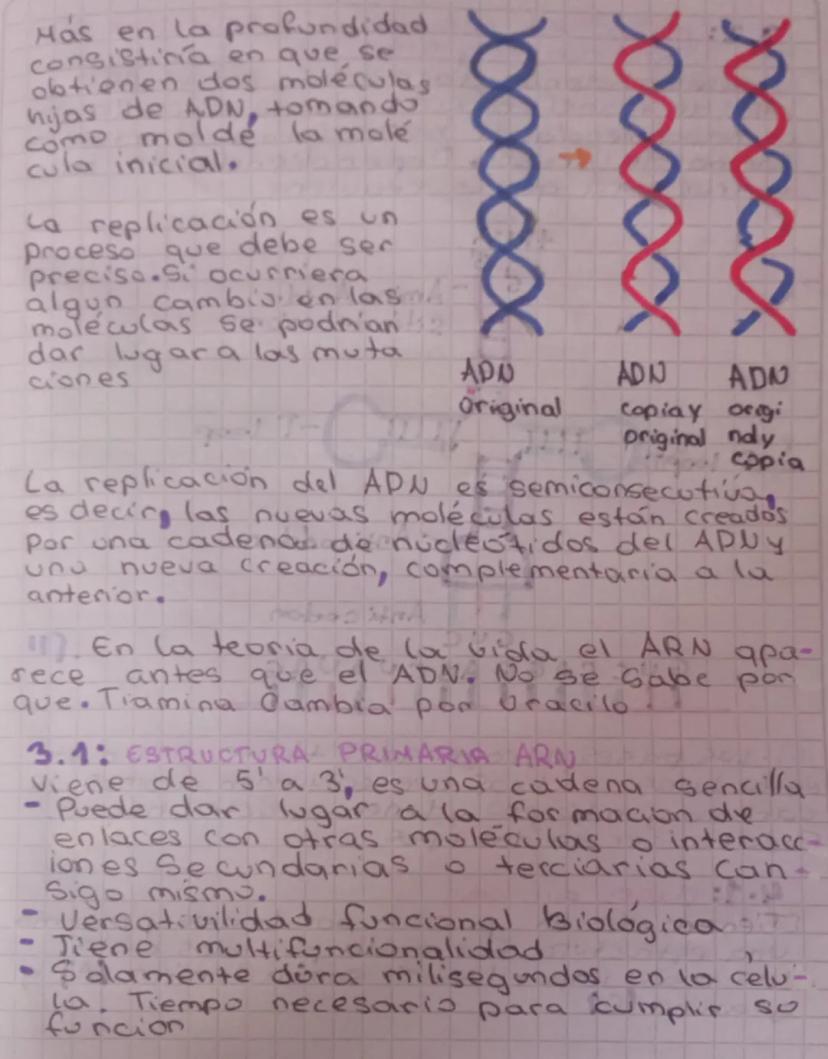 Más en la profundidad
consistiría en que se
obtienen dos moléculas
hijas de ADN, tomando
como molde la molé
cula inicial.
La replicación es un
proceso que debe ser
preciso. Si ocurriera
algun cambio en las
moléculas se podrían
dar lugar a las muta
ciones
ADN
original
ADN
copia y
original
ADN
origi
nal y
copia
La replicación del ADN es semiconsecutiva,
es decir, las nuevas moléculas están creados
por una cadena de nucleótidos del ADN y
una nueva creación, complementaria a la
anterior.
En la teoría de la vida el ARN apa-
rece antes que el ADN. No se sabe por
que. Tiamina Cambia por Uracilo
3.1: ESTRUCTURA PRIMARIA ARN
Viene de 5' a 3', es una cadena sencilla
- Puede dar lugar a la formacion de
enlaces con otras moléculas o interacc-
iones Secundarias o terciarias con-
sigo mismo.
- Versativilidad funcional Biológica
- Tiene multifuncionalidad
- Solamente dura milisegundos en la célu-
la. Tiempo necesario para cumplir su
funcion